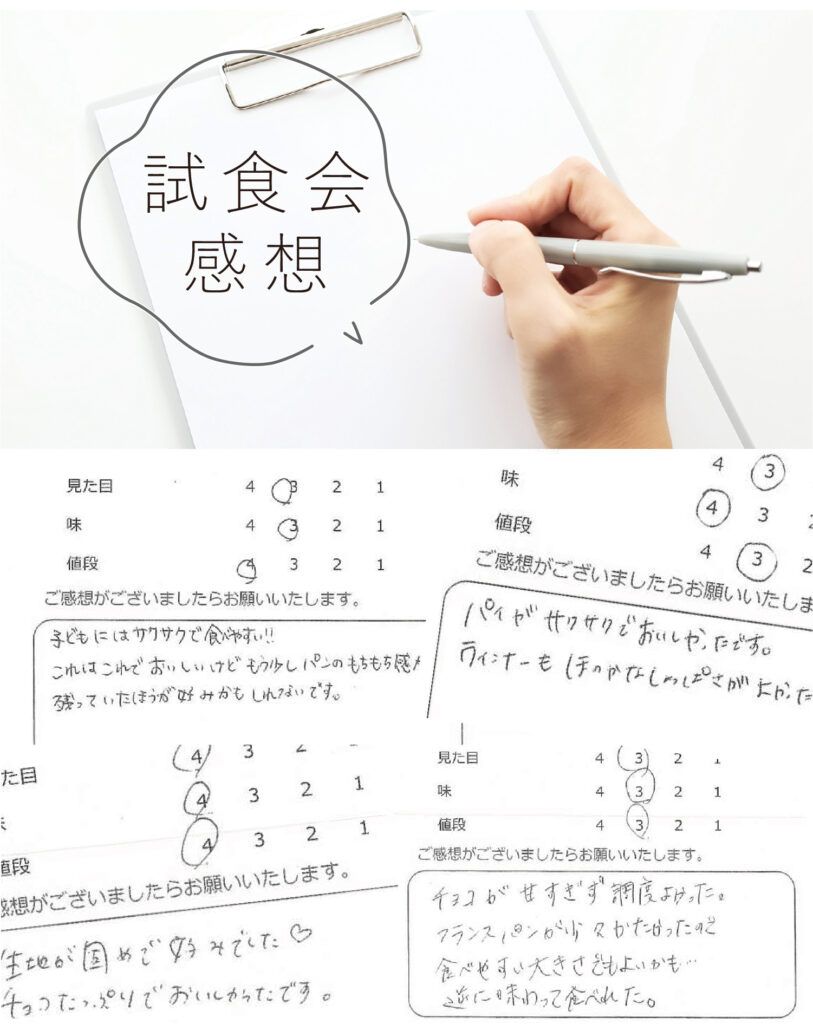 試食会
感想
見た目 4 3 2 1
味 4 3 2 1
値段 4 3 2 1
ご感想がございましたらお願いいたします。
子どもにはサクサクで食べやすい!!
これはこれでおいしいけどもう少しパンのもちもち感が
残っていたほうが好みかもしれないです。
味 4 3
値段 4 3 2
4 3 2
ご感想がございましたらお願いいたしま
パイがサクサクでおいしかったです。
ウインナーもほのかなしょっぱさがよかった
た目 4 3 2
4 3 2 1
値段 4 3 2 1
感想がございましたらお願いいたします。
生地が固めで好みでした♡
チョコたっぷりでおいしかったです。
見た目 4 3 2 1
味 4 3 2 1
値段 4 3 2 1
ご感想がございましたらお願いいたします。
チョコが甘すぎず調度よかった。
フランスパンが少々かたかったので
食べやすい大きさでもよいかも…
逆に味わって食べれた。